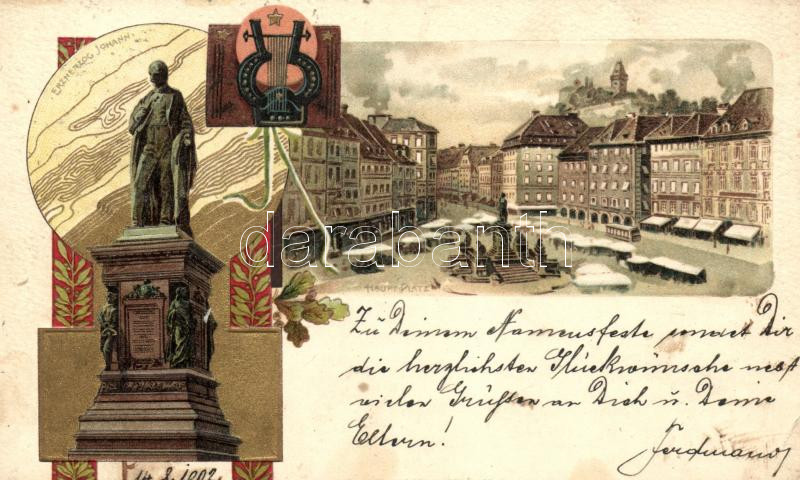 ERZHERZOG JOHANN.
HAUPT-PLATZ
darabanth
Zu Deinem Namensfeste sendet Dir
die herzlichsten Glückwünsche nebst
vielen Grüßen an Dich u. Deine
Eltern!
Ferdinand
14. 8. 1902.